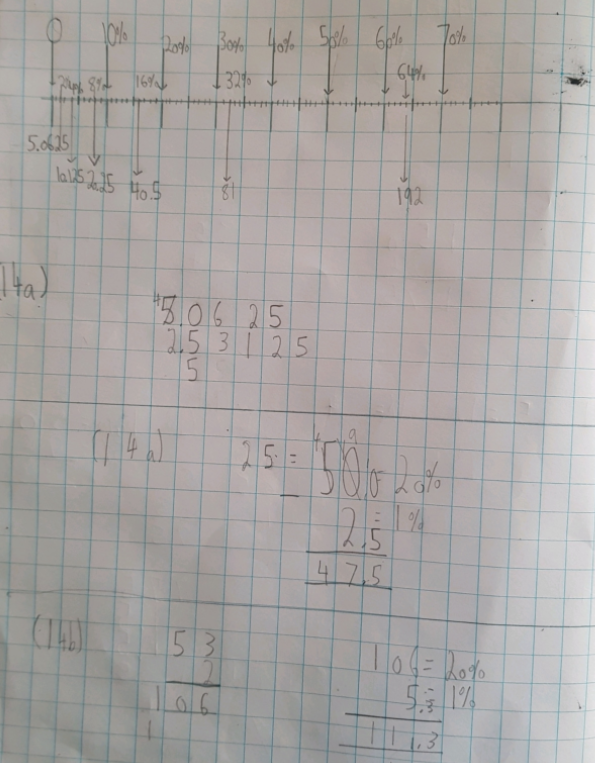 0 10% 20% 30% 40% 50% 60% 70%
2% 4% 8% 16% 32% 64%
5.0625
10.125 20.25 40.5 81 192
14a)
4 5.0625
2.53125
5
(14a) 25.= 4 9
50.0= 20%
- 2.5= 1%
47.5
(14b) 53
2
106
1
106= 20%
5.3= 1%
111.3